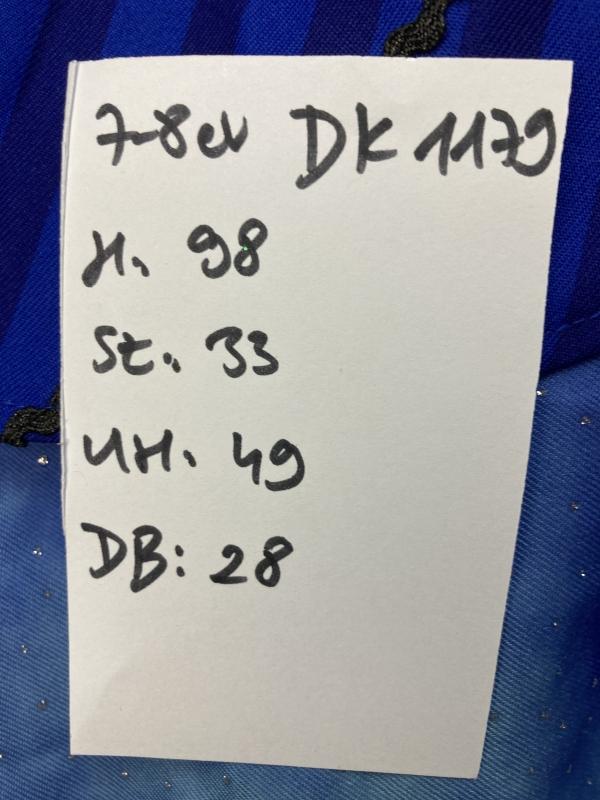 7-8 év DK 1179
H. 98
Sz. 33
UH. 49
DB: 28